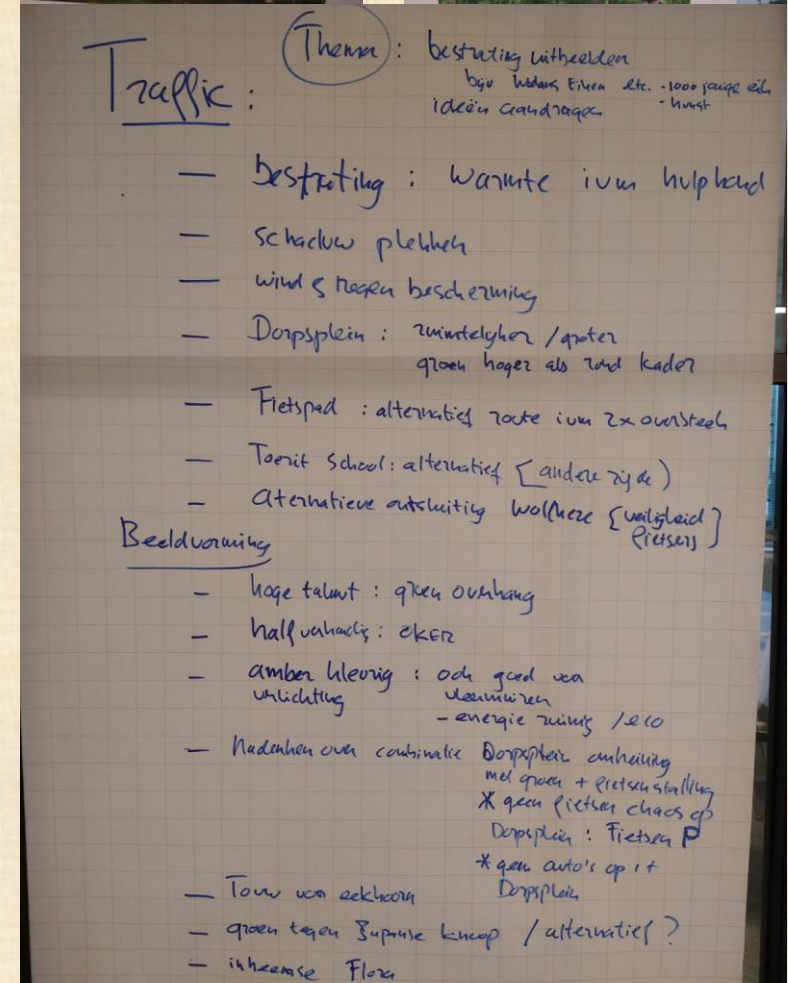 Thema : bestrating uitbeelden
bijv Wodans Eiken etc. - 1000 jarige eik
ideeën aandragen - kunst
Traffic :
— bestrating : warmte ivm hulphond
— schaduw plekken
— wind & regen bescherming
— Dorpsplein : ruimtelijker / groter
groen hoger als rond kader
— Fietspad : alternatief route ivm 2x oversteek
— Toerit School : alternatief [andere zijde)
— aternatieve ontsluiting Wolfheze [veiligheid
fietsers]
Beeldvorming
— hoge talent : groen overhang
— half verharding : OKER
— amber kleurig : ook goed voor
verlichting vleermuizen
- energie zuinig / eco
— Nadenken over combinatie Dorpsplein omheining
met groen + fietsenstalling
* geen fietsen chaos op
Dorpsplein : Fietsen P
* geen auto's op 't
Dorpsplein
— Touw voor eekhoorn
— groen tegen Japanse knoop / alternatief ?
— inheemse Flora